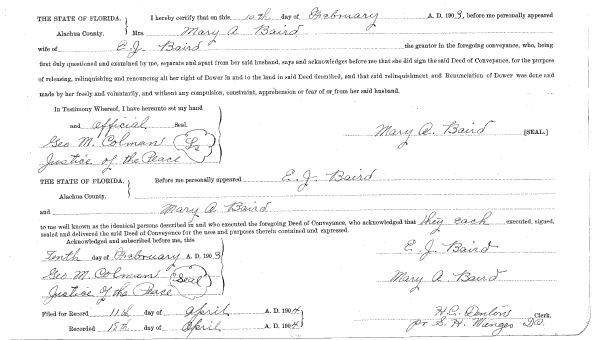 THE STATE OF FLORIDA, I hereby certify that on this 10th day of February A. D. 1903, before me personally appeared
Alachua County. Mrs. Mary A Baird
wife of E. J. Baird the grantor in the foregoing conveyance, who, being
first duly questioned and examined by me, separate and apart from her said husband, says and acknowledges before me that she did sign the said Deed of Conveyance, for the purpose
of releasing, relinquishing and renouncing all her right of Dower in and to the land in said Deed described, and that said relinquishment and Renunciation of Dower was done and
made by her freely and voluntarily, and without any compulsion, constraint, apprehension or fear of or from her said husband.
In Testimony Whereof, I have hereunto set my hand
and official Seal.
Geo M. Colman Ls
Mary A. Baird [SEAL.]
Justice of the Peace
THE STATE OF FLORIDA, Before me personally appeared E. J. Baird
Alachua County.
and Mary A Baird
to me well known as the identical persons described in and who executed the foregoing Deed of Conveyance, who acknowledged that they each executed, signed,
sealed and delivered the said Deed of Conveyance for the uses and purposes therein contained and expressed.
Acknowledged and subscribed before me, this
Tenth day of February A. D. 1903
E. J. Baird
Geo M. Colman Seal
Mary A. Baird
Justice of the Peace
Filed for Record 11th day of April A. D. 1904
H.C. Denton Clerk.
Recorded 18th day of April A. D. 1904
pr S. H. Wienges D.C.